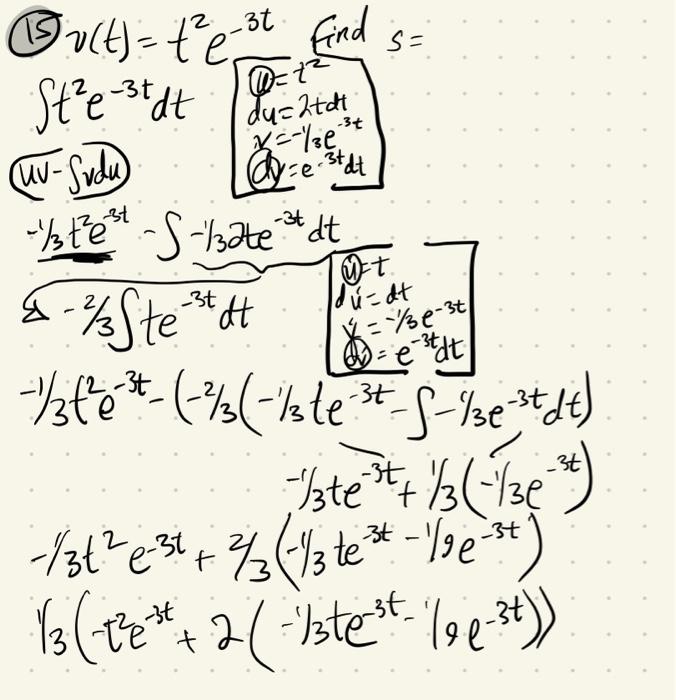 15 v(t) = t²e^-3t Find s =
∫t²e^-3t dt
u = t²
du = 2tdt
v = -1/3e^-3t
dv = e^-3t dt
uv - ∫vdu
-1/3t²e^-3t - ∫ -1/3 2te^-3t dt
-2/3∫te^-3t dt
u = t
du = dt
v = -1/3e^-3t
dv = e^-3t dt
-1/3t²e^-3t - (-2/3(-1/3te^-3t - ∫-1/3e^-3t dt)
-1/3te^-3t + 1/3(-1/3e^-3t)
-1/3t²e^-3t + 2/3(-1/3te^-3t - 1/9e^-3t)
1/3(-t²e^-3t + 2(-1/3te^-3t - 1/9e^-3t))